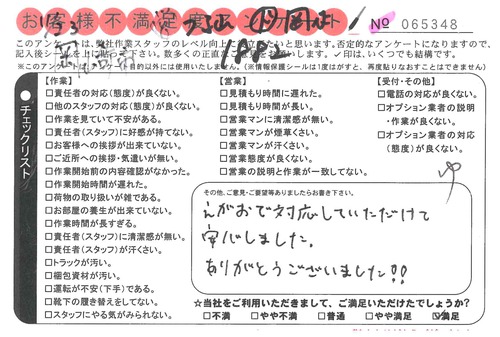 お客様不満足度
№ 065348
このアンケートは、弊社作業スタッフのレベル向上に
否定的なアンケートになりますので、
記入後シールを
数多くの正直な
✓印は、いくつでも結構です。
※このアンケートは
目的以外には使用いたしません。(※情報保護シールは1度はがすと、再度貼りなおすことはできません)
チェックリスト
【作業】
□責任者の対応(態度)が良くない。
□他のスタッフの対応(態度)が良くない。
□作業を見ていて不安がある。
□責任者(スタッフ)に好感が持てない。
□お客様への挨拶が出来ていない。
□ご近所への挨拶・気遣いが無い。
□作業開始前の内容確認がなかった。
□作業開始時間が遅れた。
□荷物の取り扱いが雑である。
□お部屋の養生が出来ていない。
□作業時間が長すぎる。
□責任者(スタッフ)に清潔感が無い。
□責任者(スタッフ)が汗くさい。
□トラックが汚い。
□梱包資材が汚い。
□運転が不安(下手)である。
□靴下の履き替えをしてない。
□スタッフにやる気がみられない。
【営業】
□見積もり時間に遅れた。
□見積もり時間が長い。
□営業マンに清潔感が無い。
□営業マンが煙草くさい。
□営業マンが汗くさい。
□営業態度が良くない。
□営業の説明と作業が一致してない。
【受付・その他】
□電話の対応が良くない。
□オプション業者の説明
・作業が良くない。
□オプション業者の対応
(態度)が良くない。
その他、ご意見・ご要望等ありましたらお書き下さい。
えがおで対応していただけて
安心しました。
ありがとうございました!!
☆当社をご利用いただきまして、ご満足いただけたでしょうか?
□不満 □やや不満 □普通 □やや満足 ☑満足